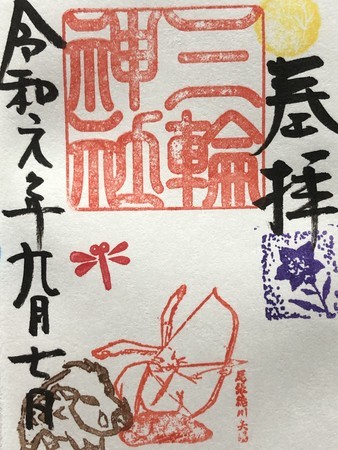 奉拝
三輪
神社
尾張徳川
令和元年九月七日